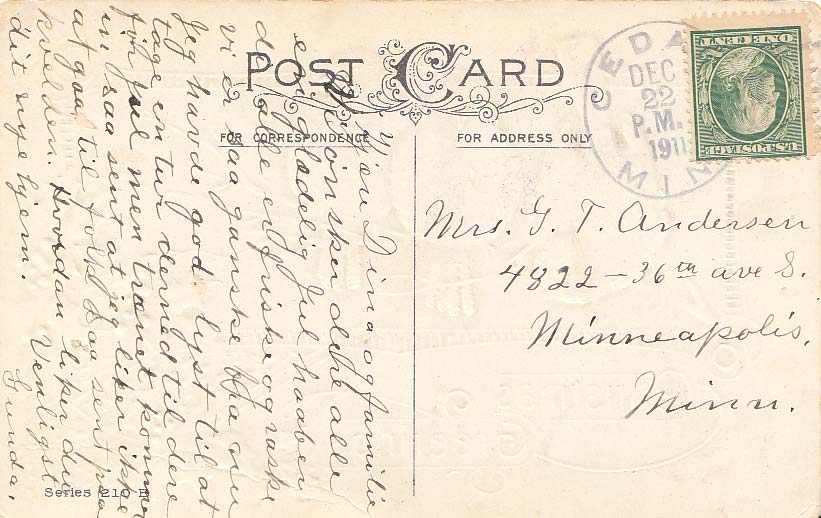 POST CARD
FOR CORRESPONDENCE
FOR ADDRESS ONLY
CEDA
DEC
22
P.M.
1911
MIN
U.S. POSTAGE
ONE CENT
Kjære Dina og familie
Vi ønsker dere alle
en glædelig Jul haaber
de er alle er friske og raske
vi er saa ganske bra nu
Jeg havde god lyst til at
tage en tur derned til dere
før Jul men trænet kommer
in saa sent at jeg liker ikke
at gaa til folk saa sent paa
kvelden. Hvordan liker du
dit nye hjem. Venligst
Gunda.
Mrs. G. T. Andersen
4822 – 36th ave S.
Minneapolis,
Minn.
Series 210 B